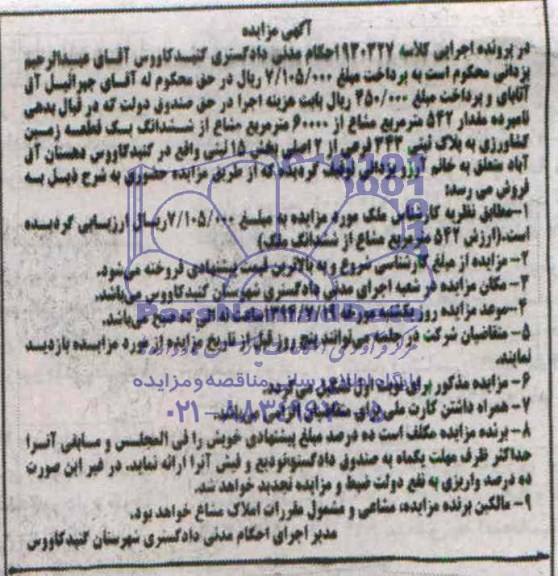 آگهی مزایده
در پرونده اجرایی کلاسه ۹۳۰۳۲۷ احکام مدنی دادگستری گنبدکاووس آقای عبدالرحیم
یزدانی محکوم است به پرداخت مبلغ ۷/۱۰۵/۰۰۰ ریال در حق محکوم له آقای جبرائیل آق
آتابای و پرداخت مبلغ ۳۵۰/۰۰۰ ریال بابت هزینه اجرا در حق صندوق دولت که در قبال بدهی
نامبرده مقدار ۵۴۲ مترمربع مشاع از ۶۰۰۰۰ مترمربع مشاع از ششدانگ یک قطعه زمین
کشاورزی به پلاک ثبتی ۲۴۳ فرعی از ۲ اصلی بخش ۱۵ ثبتی واقع در گنبدکاووس دهستان آق
آباد متعلق به خانم آرزو یزدانی توقیف گردیده که از طریق مزایده حضوری به شرح ذیل به
فروش می رسد:
۱-مطابق نظریه کارشناس ملک مورد مزایده به مبلغ ۷/۱۰۵/۰۰۰ریال ارزیابی گردیده
است.(ارزش ۵۴۲ مترمربع مشاع از ششدانگ ملک)
۲- مزایده از مبلغ کارشناسی شروع و به بالاترین قیمت پیشنهادی فروخته می‌شود.
۳- مکان مزایده در شعبه اجرای مدنی دادگستری شهرستان گنبدکاووس می‌باشد.
۴-موعد مزایده روز یکشنبه مورخه ۱۳۹۴/۷/۱۹ ساعت صبح می‌باشد.
۵- متقاضیان شرکت در جلسه می‌توانند پنج روز قبل از تاریخ مزایده از مورد مزایده بازدید
نمایند.
۶- مزایده مذکور برای نوبت اول تشکیل می گردد.
۷- همراه داشتن کارت ملی برای متقاضیان الزامی می‌باشد.
۸- برنده مزایده مکلف است ده درصد مبلغ پیشنهادی خویش را فی المجلس و مابقی آنرا
حداکثر ظرف مهلت یکماه به صندوق دادگستری تودیع و فیش آنرا ارائه نماید. در غیر این صورت
ده درصد واریزی به نفع دولت ضبط و مزایده تجدید خواهد شد.
۹- مالکین برنده مزایده، مشاعی و مشمول مقررات املاک مشاع خواهد بود.
مدیر اجرای احکام مدنی دادگستری شهرستان گنبدکاووس
پایگاه اطلاع رسانی مناقصه و مزایده